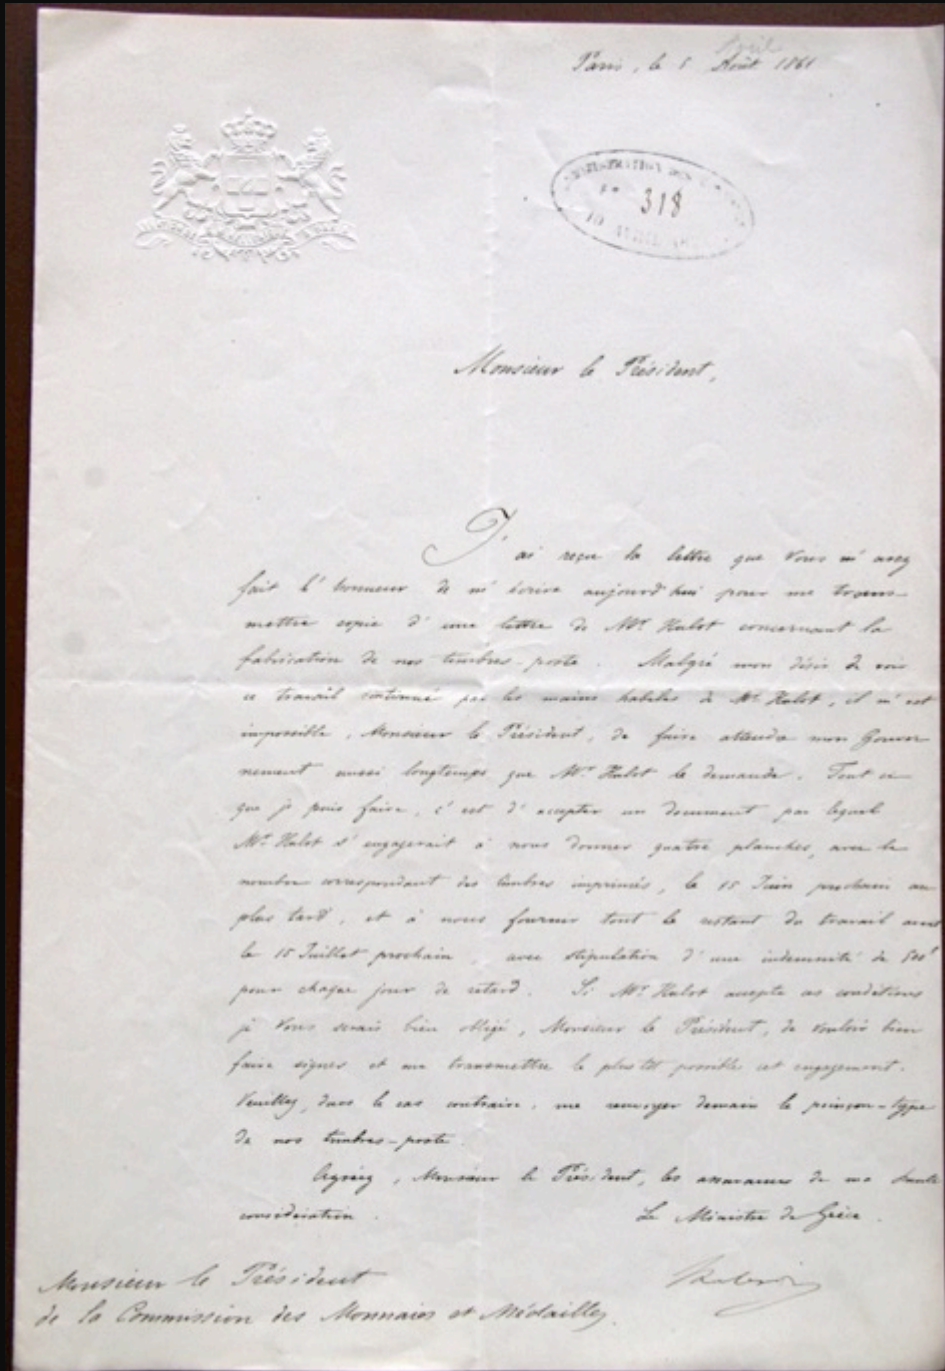 Avril
Paris, le 5 Août 1861
ADMINISTRATION DES
318
10 AVRIL
Monsieur le Président,
J'ai reçu la lettre que Vous m'avez
fait l'honneur de m'écrire aujourd'hui pour me trans-
mettre copie d'une lettre de Mr Hulot concernant la
fabrication de nos timbres-poste. Malgré mon désir de voir
ce travail continué par les mains habiles de Mr Hulot, il m'est
impossible, Monsieur le Président, de faire attendre mon Gouver
nement aussi longtemps que Mr Hulot le demande. Tout ce
que je puis faire, c'est d'accepter un document par lequel
Mr Hulot s'engagerait à nous donner quatre planches, avec le
nombre correspondant des timbres imprimés, le 15 Juin prochain au
plus tard, et à nous fournir tout le restant du travail avant
le 15 Juillet prochain, avec stipulation d'une indemnité de 500f
pour chaque jour de retard. Si Mr Hulot accepte ces conditions
je Vous serais bien obligé, Monsieur le Président, de vouloir bien
faire signer et me transmettre le plus tôt possible cet engagement.
Veuillez, dans le cas contraire, me renvoyer demain le poinçon-type
de nos timbres-poste.
Agréez, Monsieur le Président, les assurances de ma haute
considération.
Le Ministre de Grèce.
Monsieur le Président
de la Commission des Monnaies et Médailles.